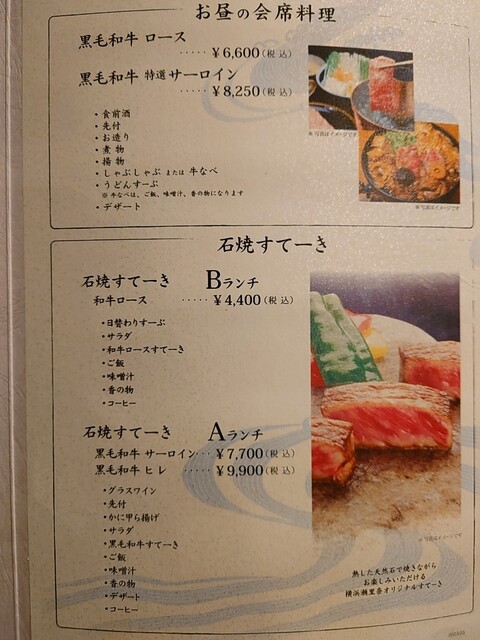 お昼の会席料理
黒毛和牛 ロース
‥‥‥ ¥6,600(税込)
黒毛和牛 特選 サーロイン
‥‥‥ ¥8,250(税込)
・食前酒
・先付
・お造り
・煮物
・揚物
・しゃぶしゃぶ または 牛なべ
・うどんすーぷ
※牛なべは、ご飯、味噌汁、香の物になります
・デザート
※写真はイメージです
※写真はイメージです
石焼すてーき
石焼すてーき Bランチ
和牛ロース ‥‥‥ ¥4,400(税込)
・日替わりすーぷ
・サラダ
・和牛ロースすてーき
・ご飯
・味噌汁
・香の物
・コーヒー
石焼すてーき Aランチ
黒毛和牛 サーロイン‥‥ ¥7,700(税込)
黒毛和牛 ヒレ ‥‥‥ ¥9,900(税込)
・グラスワイン
・先付
・かに甲ら揚げ
・サラダ
・黒毛和牛すてーき
・ご飯
・味噌汁
・香の物
・デザート
・コーヒー
※写真はイメージです
熱した天然石で焼きながら
お楽しみいただける
横浜瀬里奈オリジナルすてーき